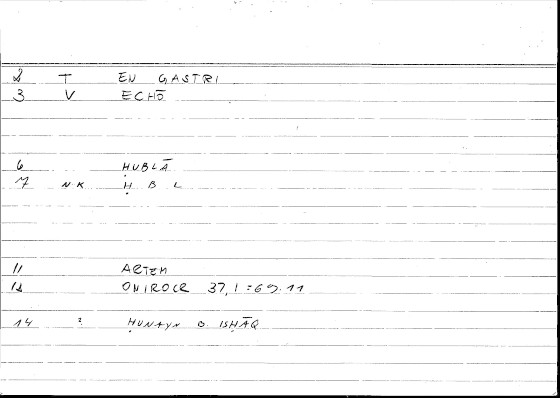 2 T EN GASTRI
3 V ECHŌ
6 ḤUBLĀ
7 NK Ḥ B L
11 ARTEM
12 ONIROCR 37,1 = 69.11
14 ? ḤUNAYN B. ISḤĀQ